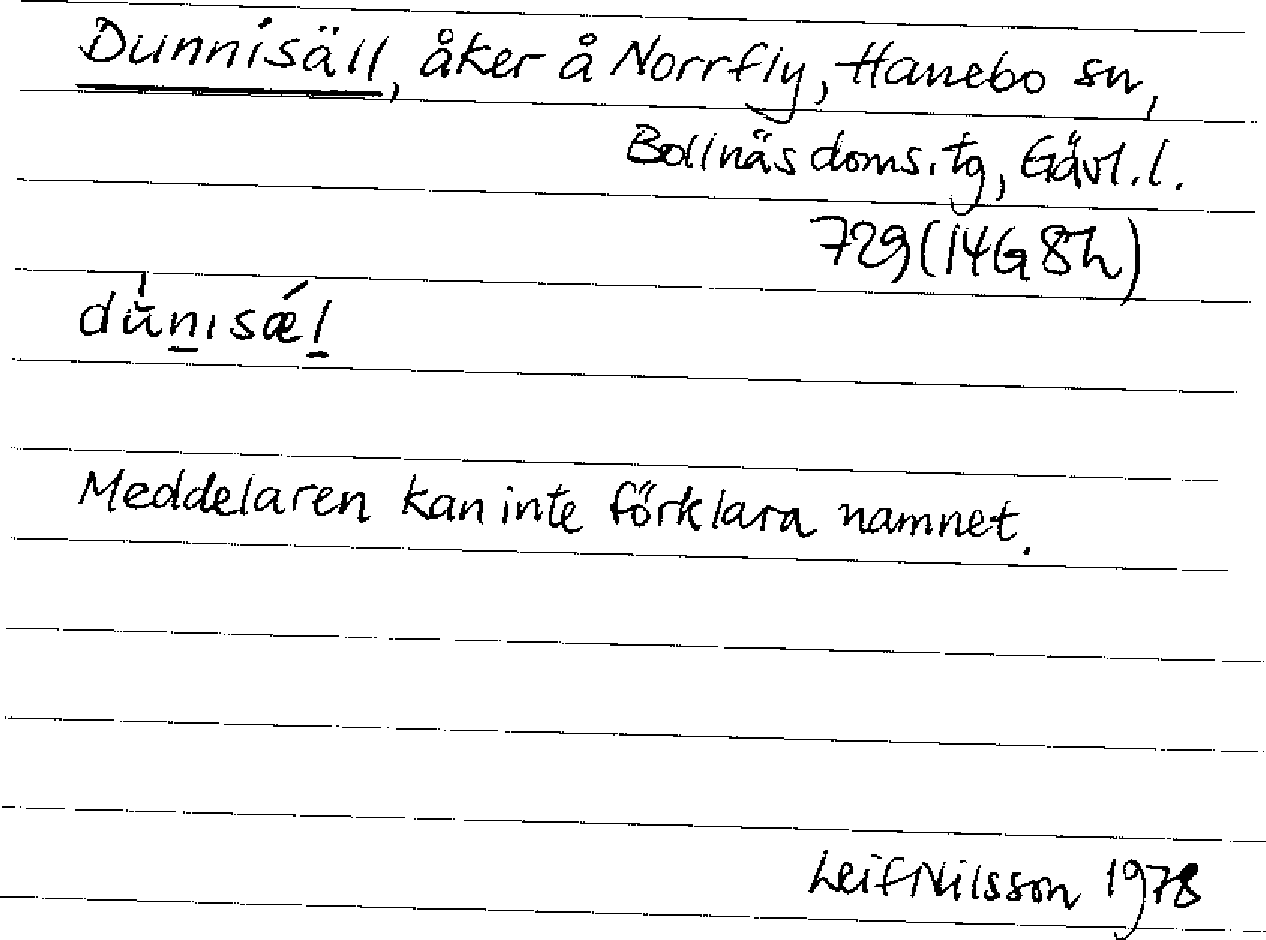 Dunnisäll, åker å Norrfly, Hanebo sn,
Bollnäs doms.tg, Gävl.l.
729(14G8h)
du̍n̲ısǽl̲
Meddelaren kan inte förklara namnet.
Leif Nilsson 1978